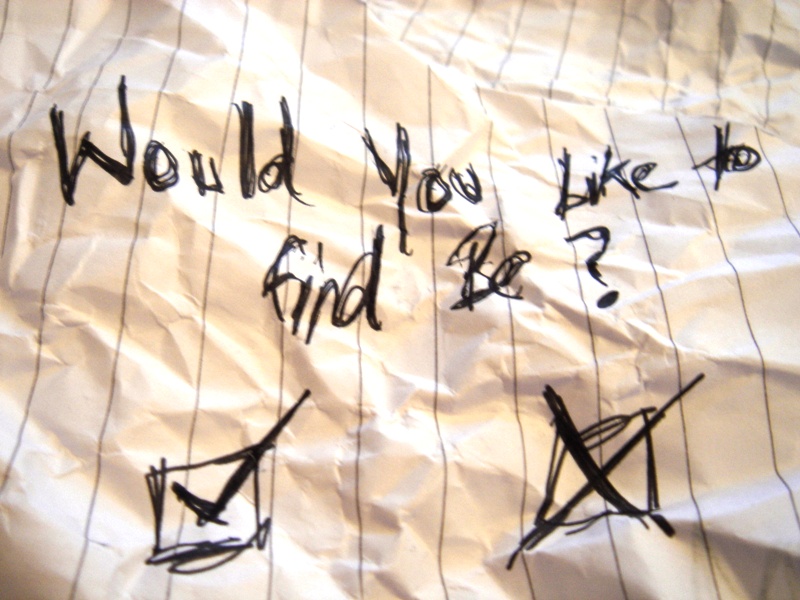 Would you Like to
find Be ?